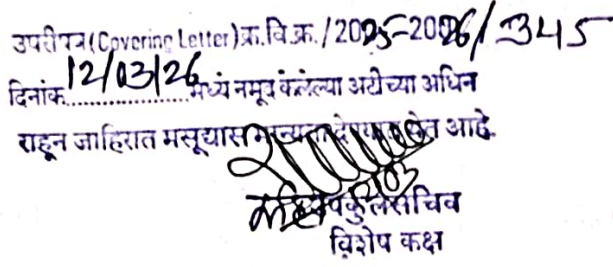 उपरीपत्र (Covering Letter) क्र.वि.क्र./2025-2026/345
दिनांक 12/03/26 मध्ये नमूद केलेल्या अटीच्या अधिन
राहून जाहिरात मसूद्यास मान्यता देण्यात येत आहे.
उपकुलसचिव
विशेष कक्ष